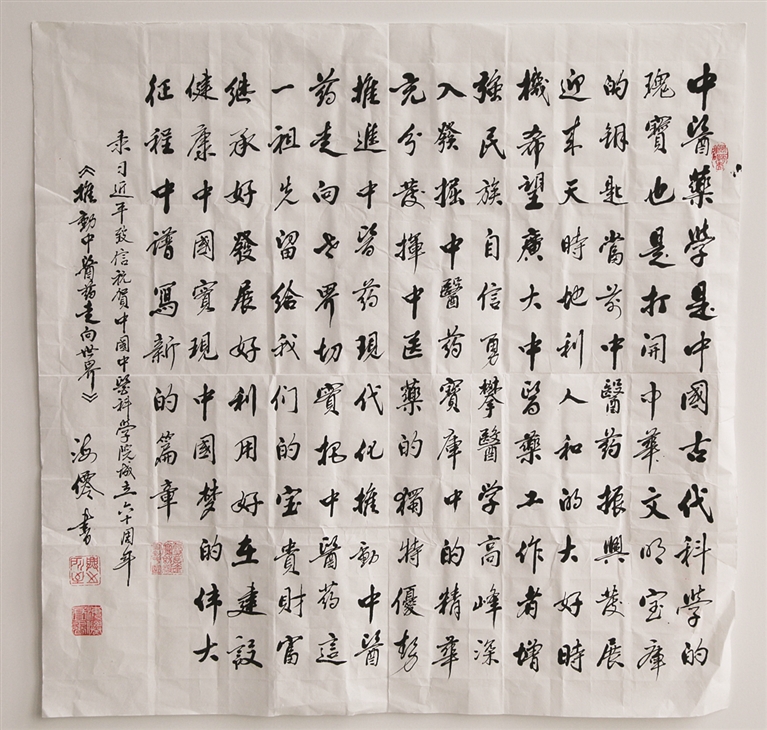 中醫藥學是中國古代科學的
瑰寶也是打開中華文明宝庫
的鑰匙當前中醫药振興發展
迎来天時地利人和的大好時
機希望廣大中醫藥工作者增
強民族自信勇攀醫学高峰深
入發掘中醫药寶庫中的精華
充分發揮中医藥的獨特優势
推進中醫药現代化推動中醫
药走向世界切實把中醫药這
一祖先留給我們的宝貴財富
继承好發展好利用好在建設
健康中國實現中國梦的伟大
征程中谱寫新的篇章
录习近平致信祝賀中國中醫科学院成立六十周年
《推動中醫药走向世界》
海書